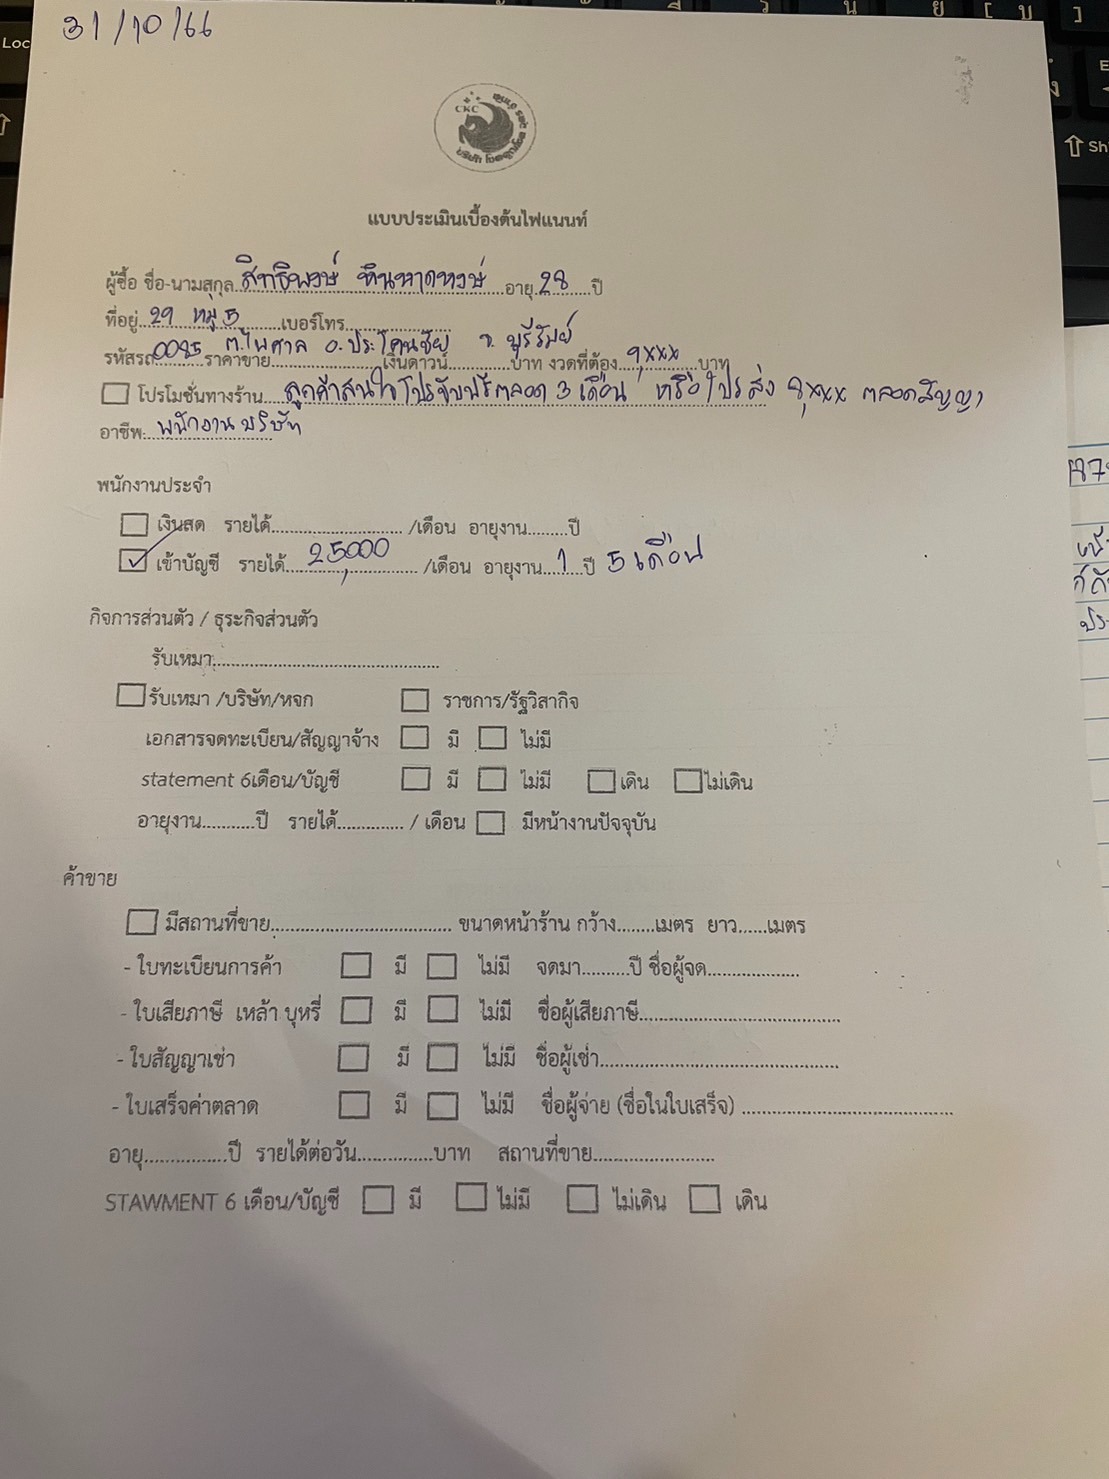 31/10/66
CKC
แบบประเมินเบื้องต้นไฟแนนท์
ผู้ซื้อ ชื่อ-นามสกุล สิทธิพงษ์ หินหาดหงษ์ อายุ 28 ปี
ที่อยู่ 29 หมู่ 5 เบอร์โทร
ต.ไพศาล อ.ประโคนชัย จ. บุรีรัมย์
รหัสรถ 0085 ราคาขาย เงินดาวน์ บาท งวดที่ต้อง 9,xxx บาท
โปรโมชั่นทางร้าน ลูกค้าสนใจโปรขับฟรีตลอด 3 เดือน หรือโปรส่ง 8,xxx ตลอดสัญญา
อาชีพ พนักงานบริษัท
พนักงานประจำ
เงินสด รายได้ /เดือน อายุงาน ปี
เข้าบัญชี รายได้ 25,000 /เดือน อายุงาน 1 ปี 5 เดือน
กิจการส่วนตัว / ธุระกิจส่วนตัว
รับเหมา
รับเหมา /บริษัท/หจก ราชการ/รัฐวิสากิจ
เอกสารจดทะเบียน/สัญญาจ้าง มี ไม่มี
statement 6เดือน/บัญชี มี ไม่มี เดิน ไม่เดิน
อายุงาน ปี รายได้ / เดือน มีหน้างานปัจจุบัน
ค้าขาย
มีสถานที่ขาย ขนาดหน้าร้าน กว้าง เมตร ยาว เมตร
- ใบทะเบียนการค้า มี ไม่มี จดมา ปี ชื่อผู้จด
- ใบเสียภาษี เหล้า บุหรี่ มี ไม่มี ชื่อผู้เสียภาษี
- ใบสัญญาเช่า มี ไม่มี ชื่อผู้เช่า
- ใบเสร็จค่าตลาด มี ไม่มี ชื่อผู้จ่าย (ชื่อในใบเสร็จ)
อายุ ปี รายได้ต่อวัน บาท สถานที่ขาย
STAWMENT 6 เดือน/บัญชี มี ไม่มี ไม่เดิน เดิน